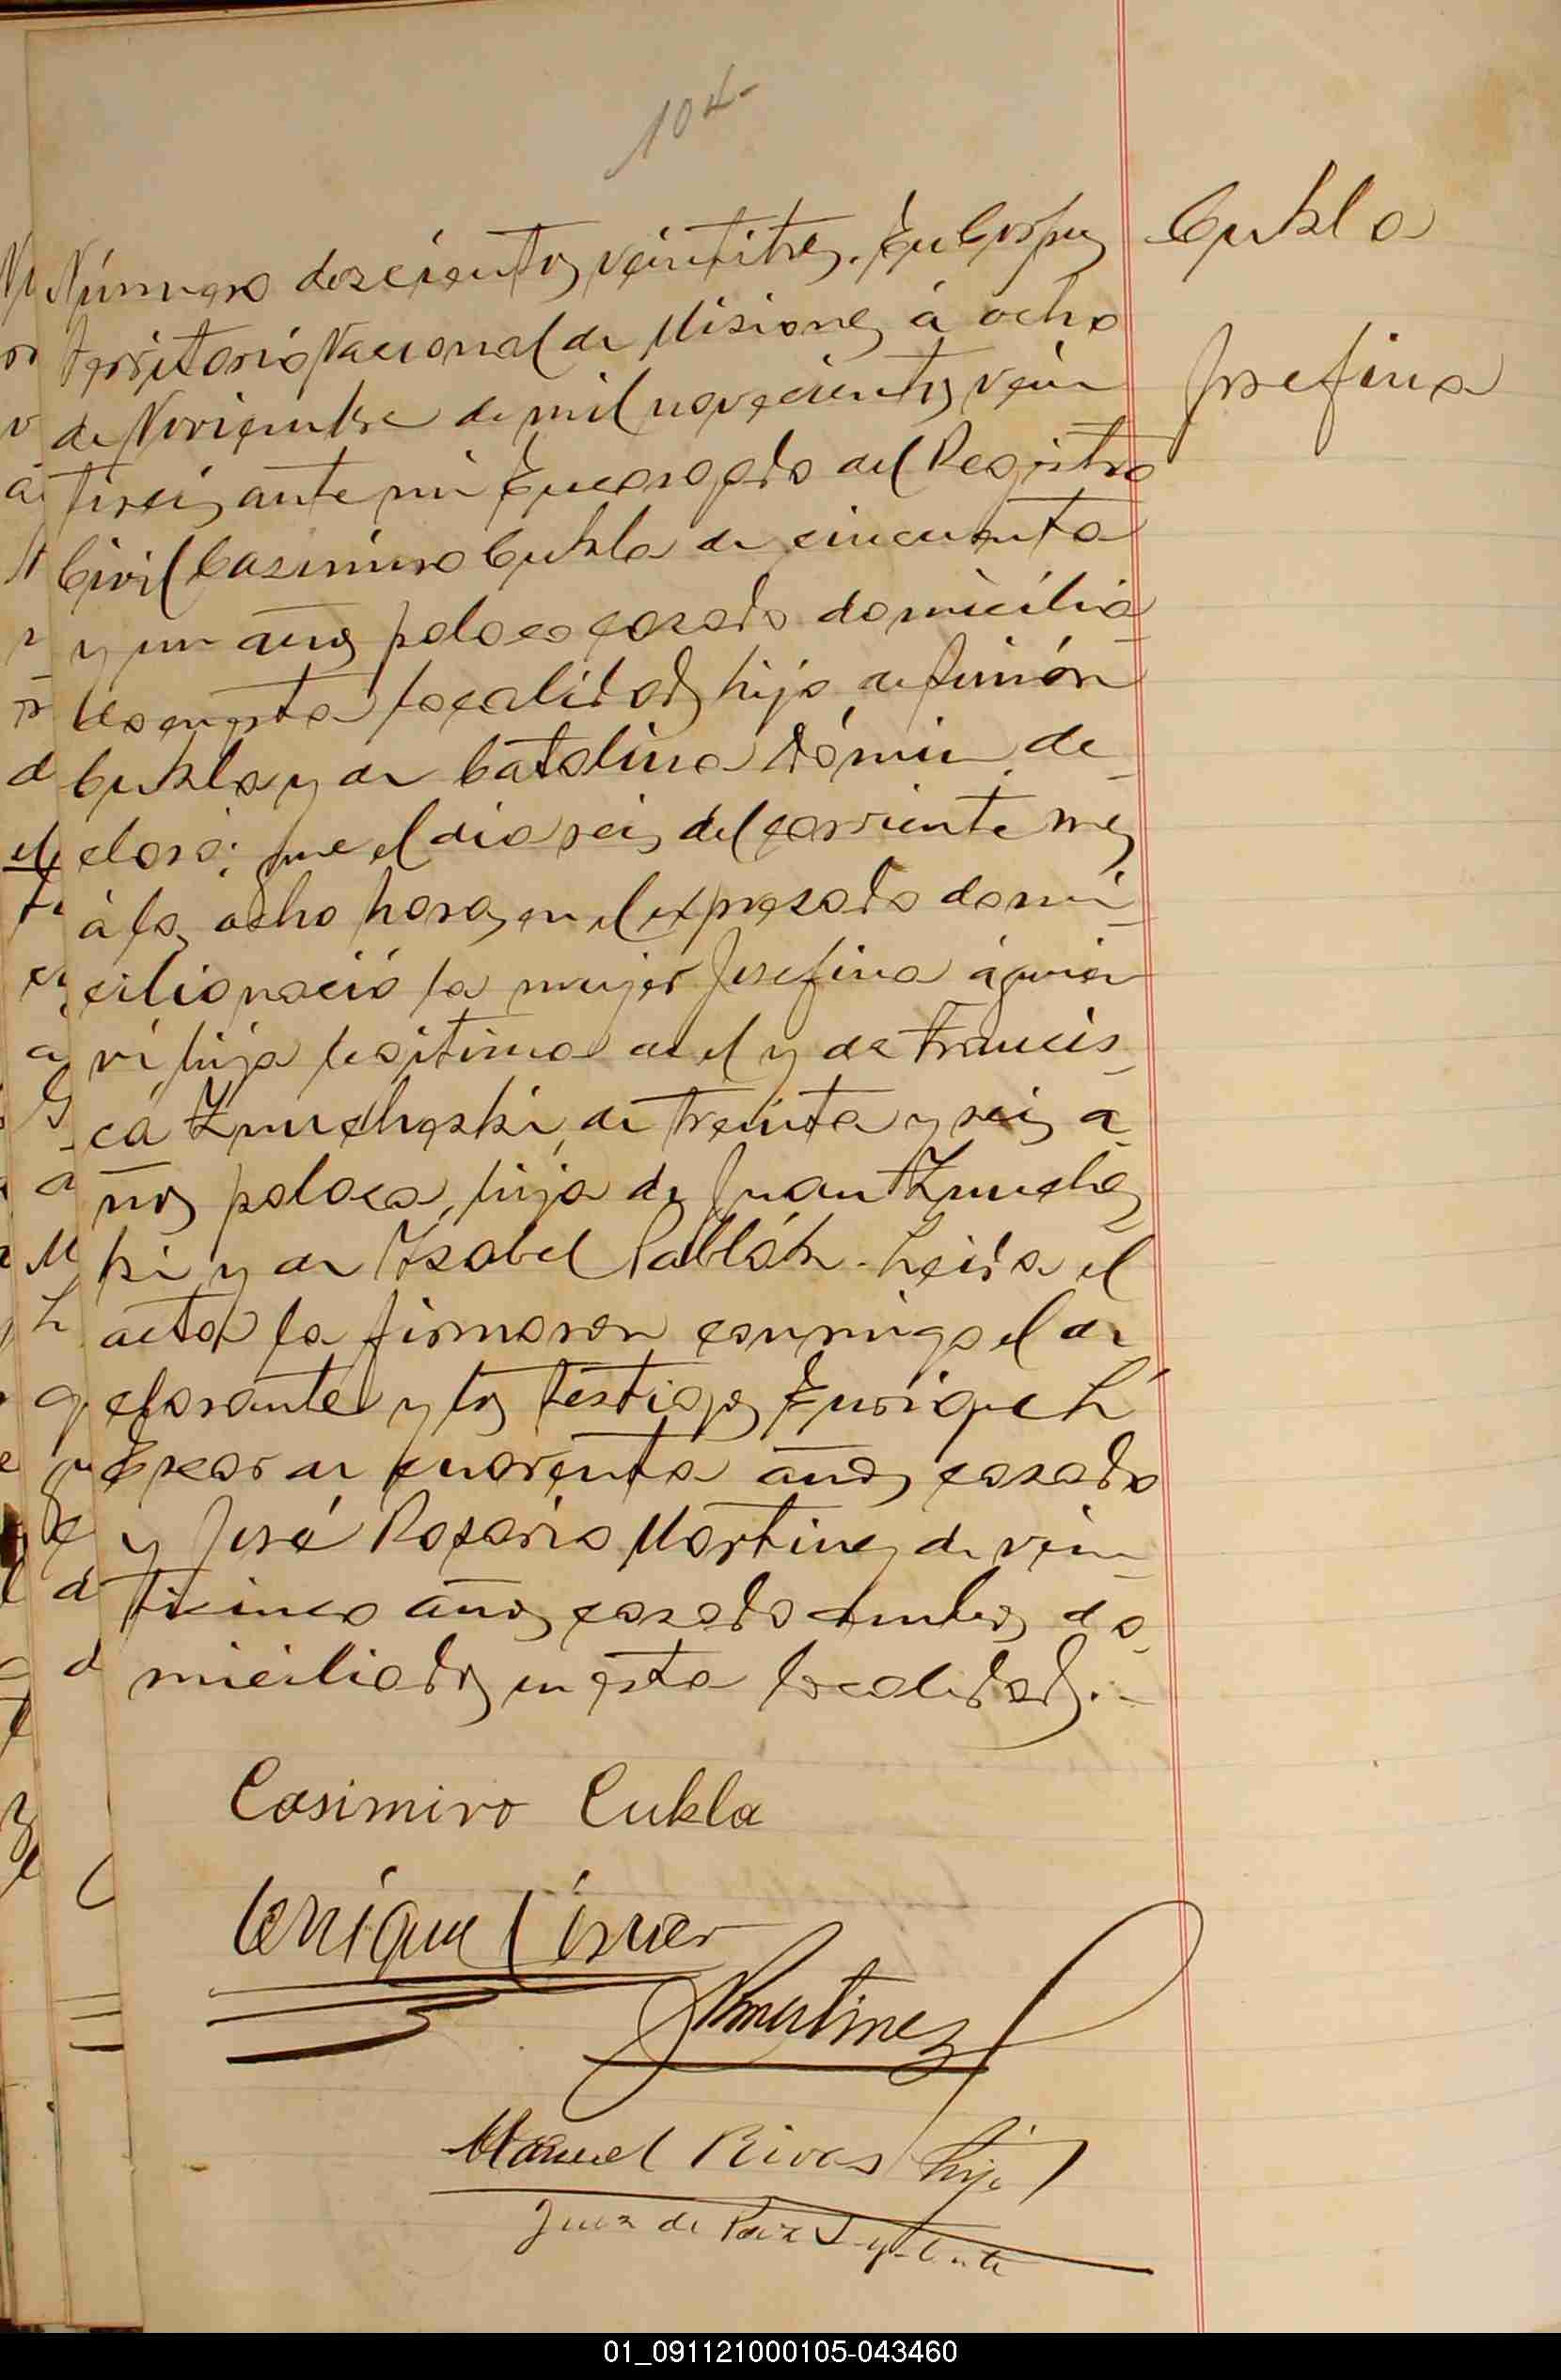 104-
Cukla
Josefina
Número doscientos veintitres. En Corpus
territorio Nacional de Misiones á ocho
de Noviembre de mil novecientos vein
tiseis ante mi Encargado del Registro
Civil Casimiro Cukla de cincuenta
y un años polaco casado domicilia
do en esta localidad hijo de Simón
Cukla y de Catalina de-
clara: que el dia seis del corriente mes
á las ocho horas en el expresado domi-
cilio nació la mujer Josefina á quien
ví hija legitima de el y de Francis-
ca Zmucheski, de treinta y seis a-
ños polaca, hija de Juan Zmuches
ki y de Isabel Leida el
acta la firmaron conmigo el de
clarante y los testigos Enrique L
de cuarenta años casado
y José Rosario Martinez de vein-
ticinco años casado ambos do-
miciliados en esta localidad.-
Casimiro Cukla
Enrique
Martinez
Manuel Rivas hijo
Juez de Paz Suplente
01_091121000105-043460